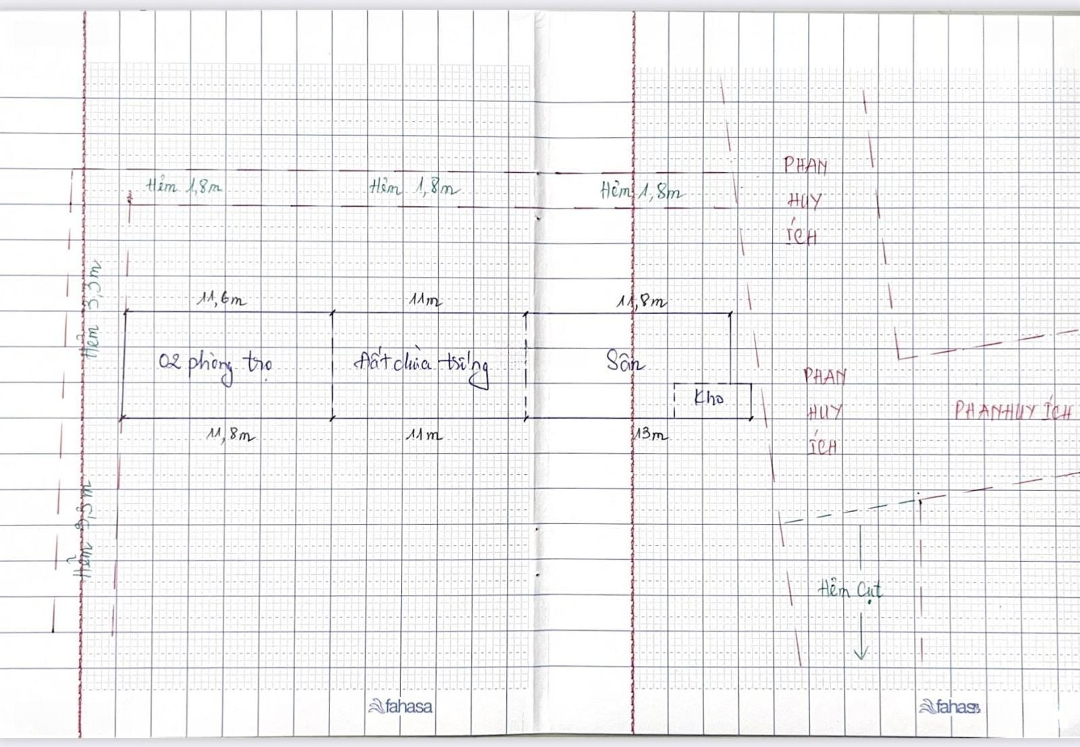 Hẻm 1,8m
Hẻm 1,8m
Hẻm 1,8m
PHAN
HUY
ÍCH
Hẻm 3,3m
11,6m
11m
11,8m
02 phòng trọ
Đất chừa trống
Sân
Kho
11,8m
11m
13m
PHAN
HUY
ÍCH
PHAN HUY ÍCH
Hẻm 3,3m
Hẻm cụt
fahasa
fahasa